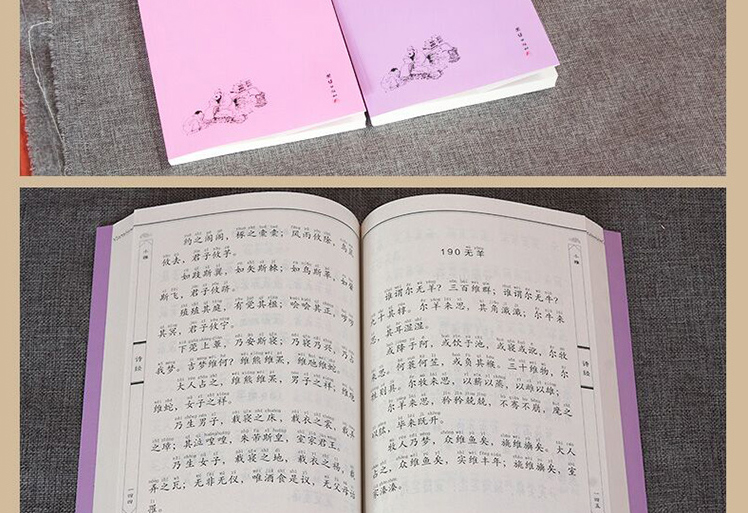 小雅
诗经
约之阁阁，椓之橐橐；风雨攸除，鸟鼠
攸去，君子攸芋。
如跂斯翼，如矢斯棘；如鸟斯革，如翚
斯飞，君子攸跻。
殖殖其庭，有觉其楹；哙哙其正，哕哕
其冥，君子攸宁。
下莞上簟，乃安斯寝；乃寝乃兴，乃占
我梦。吉梦维何？维熊维罴，维虺维蛇。
大人占之，维熊维罴，男子之祥；维虺
维蛇，女子之祥。
乃生男子，载寝之床，载衣之裳，载弄
之璋；其泣喤喤，朱芾斯皇，室家君王。
乃生女子，载寝之地，载衣之裼，载
弄之瓦；无非无仪，唯酒食是议，无父母诒
罹。
一四四
190无羊
谁谓尔无羊？三百维群；谁谓尔无牛？
九十其犉。尔羊来思，其角濈濈；尔牛来
思，其耳湿湿。
或降于阿，或饮于池，或寝或讹，尔牧
来思。何蓑何笠，或负其餱。三十维物，尔
牲则具。尔牧来思，以薪以蒸，以雌以雄；
尔羊来思，矜矜兢兢，不骞不崩，麾之
以肱，毕来既升。
牧人乃梦，众维鱼矣，旐维旟矣。大人
占之，众维鱼矣，实维丰年；旐维旟矣，室
家溱溱。
小雅
诗经
一四五